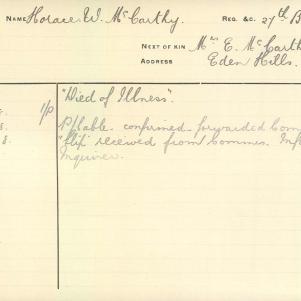 NAME Horace W. McCarthy. REG. &C. 27th B
NEXT OF KIN Mrs E. McCarth
ADDRESS Eden Hills.
1/P "Died of Illness".
8. P/flable confirmed forwarded Com
8. "Slip" received from Commes. Inf
Inquirer.